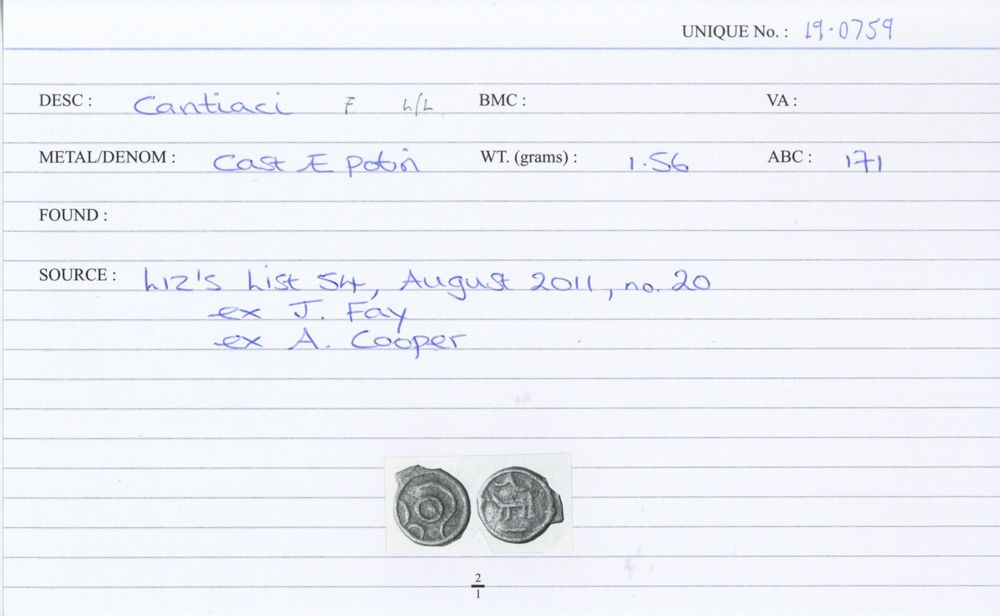 UNIQUE No. : 19-0759
DESC : Cantiaci F L/L BMC : VA :
METAL/DENOM : Cast Æ potin WT. (grams) : 1.56 ABC : 171
FOUND :
SOURCE : Liz's List 54, August 2011, no. 20
ex J. Fay
ex A. Cooper
2
1